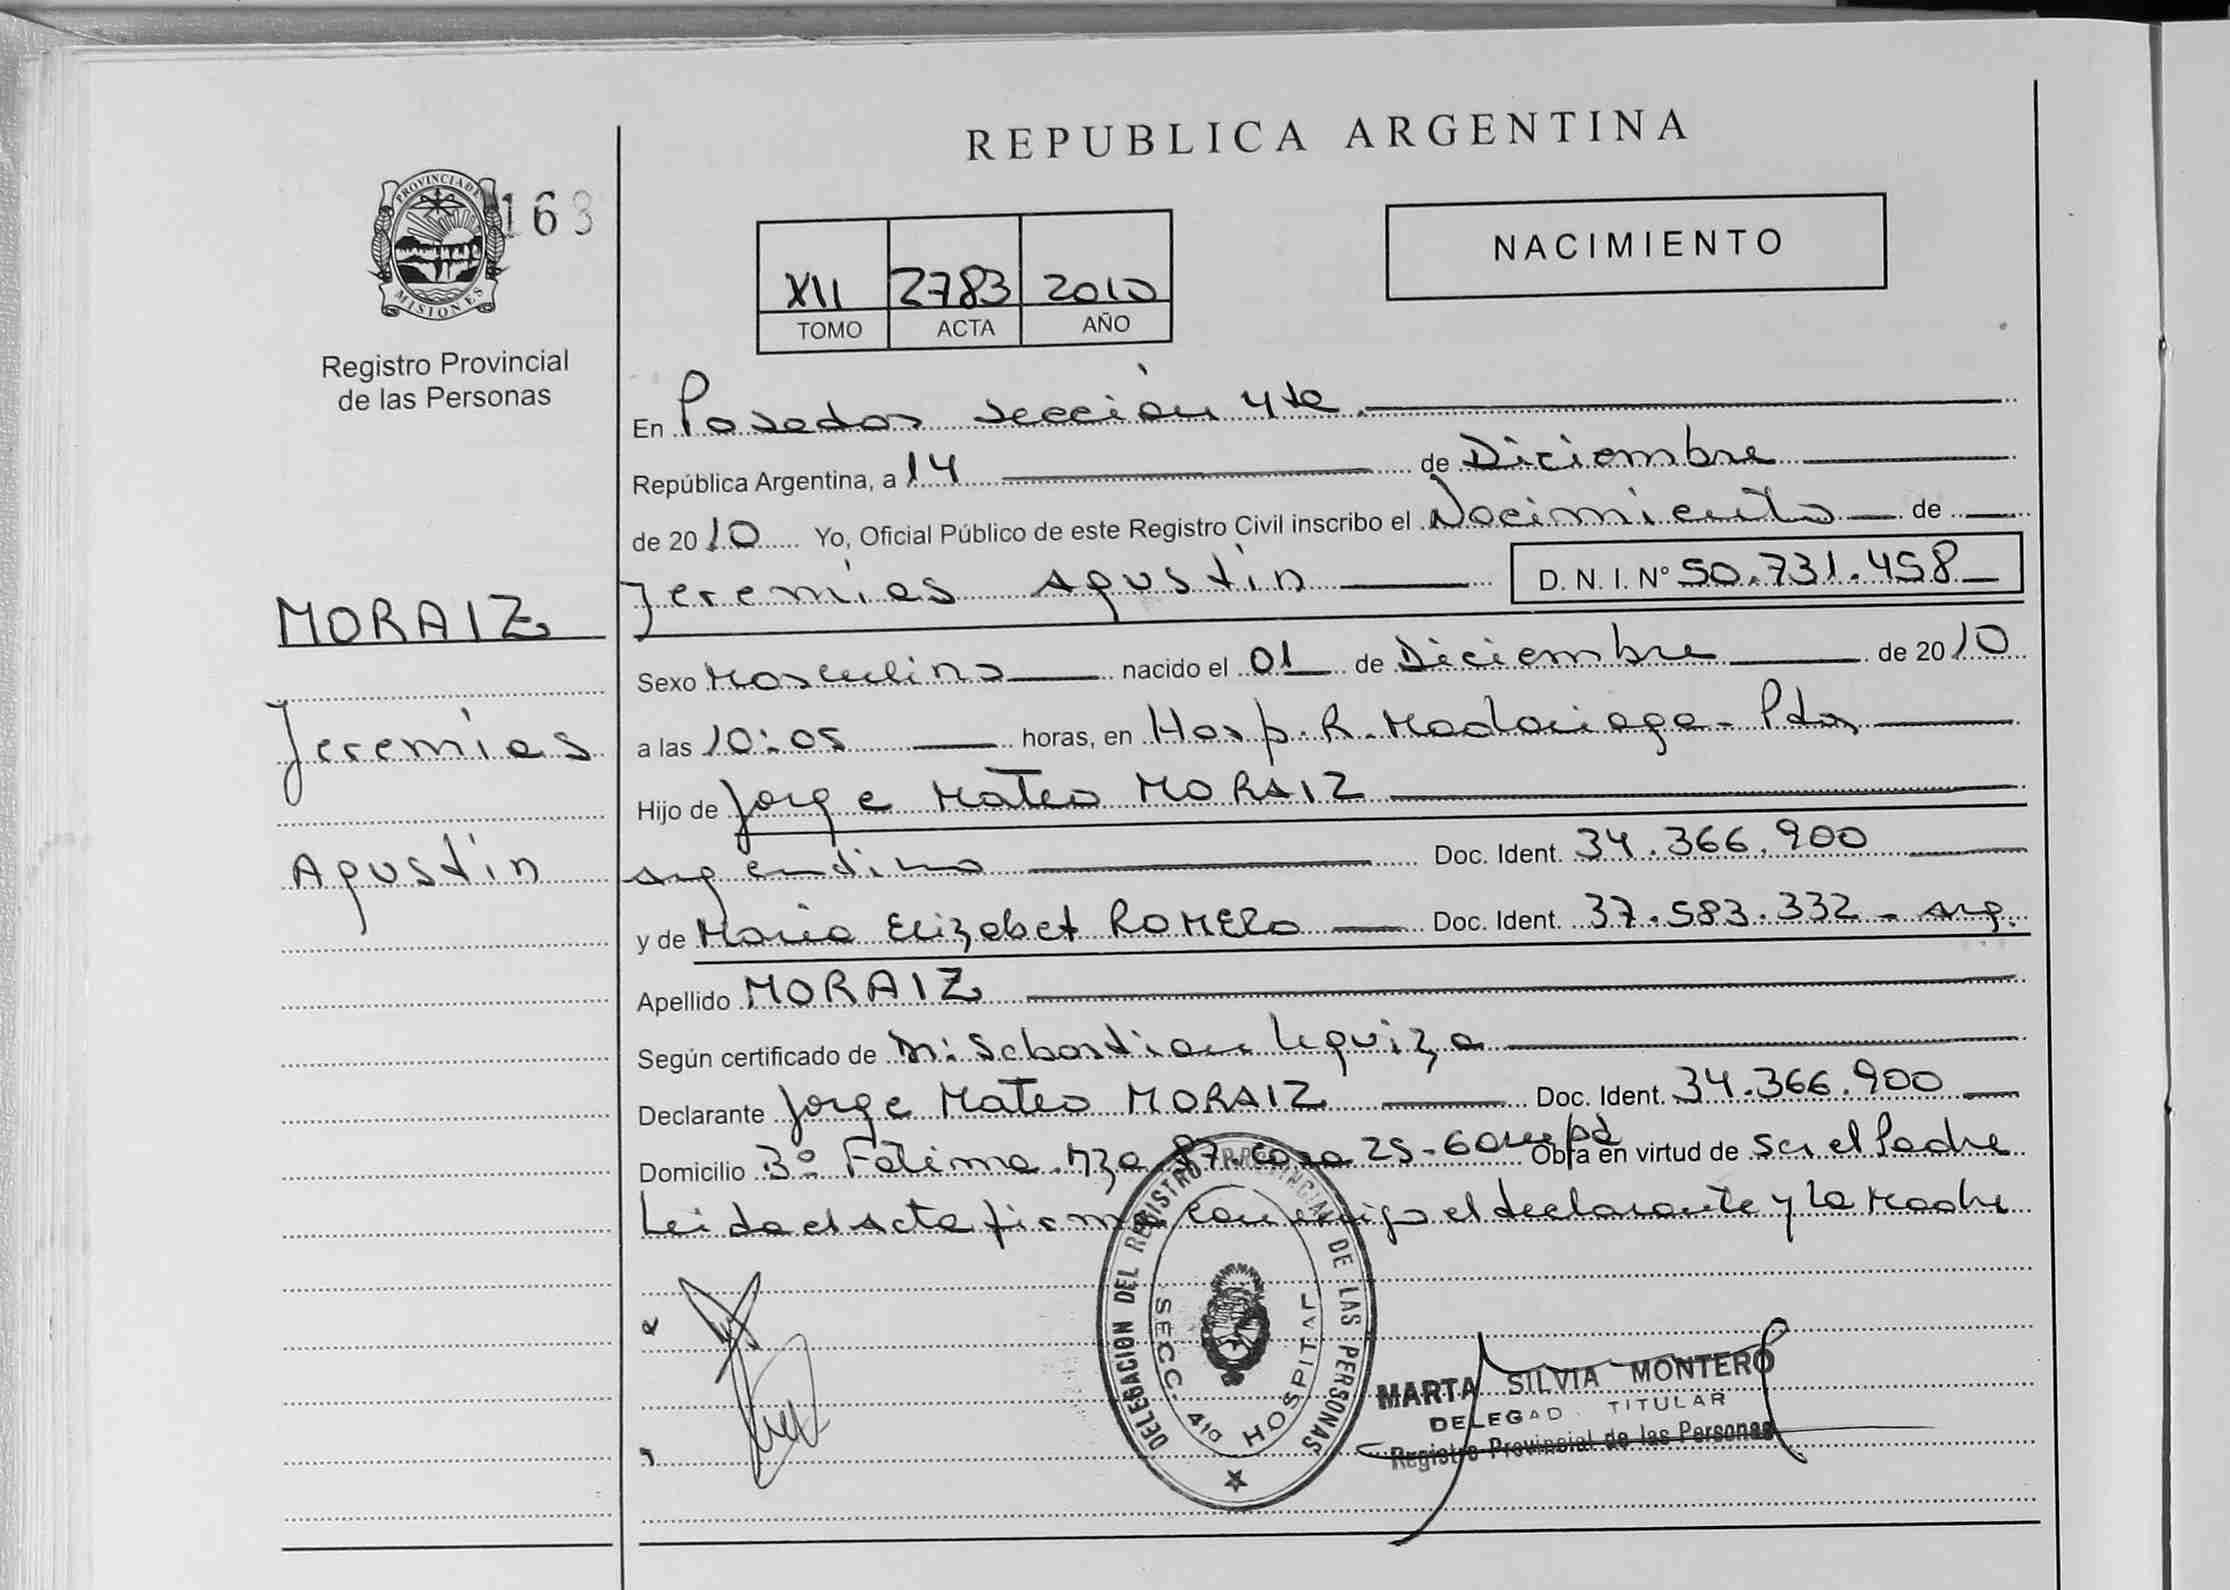 REPUBLICA ARGENTINA
PROVINCIA DE
MISIONES
163
Registro Provincial
de las Personas
XII 2783 2010
TOMO ACTA AÑO
NACIMIENTO
MORAIZ
Jeremías
Agustín
En Posadas sección 4ta
República Argentina, a 14 de Diciembre
de 2010 Yo, Oficial Público de este Registro Civil inscribo el Nacimiento de
Jeremías Agustín D. N. I. Nº 50.731.458
Sexo Masculino nacido el 01 de Diciembre de 2010
a las 10:05 horas, en Hosp. R. Madariaga - Pdas
Hijo de Jorge Mateo MORAIZ
argentino Doc. Ident. 34.366.900
y de María Elizabet ROMERO Doc. Ident. 37.583.332 - arg.
Apellido MORAIZ
Según certificado de Sebastian Leguiza
Declarante Jorge Mateo MORAIZ Doc. Ident. 34.366.900
Domicilio Bº Fátima Mza 87 Casa 25 - Obra en virtud de ser el Padre
Leida el Acta firma conmigo el declarante y la Madre
DELEGACION DEL REGISTRO PROVINCIAL DE LAS PERSONAS
SECC. 4ta HOSPITAL
MARTA SILVIA MONTERO
DELEGAD TITULAR
Registro Provincial de las Personas